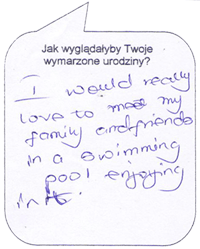 Jak wyglądałyby Twoje
wymarzone urodziny?
I would really
love to meet my
family and friends
in a swimming
pool enjoying
in it.